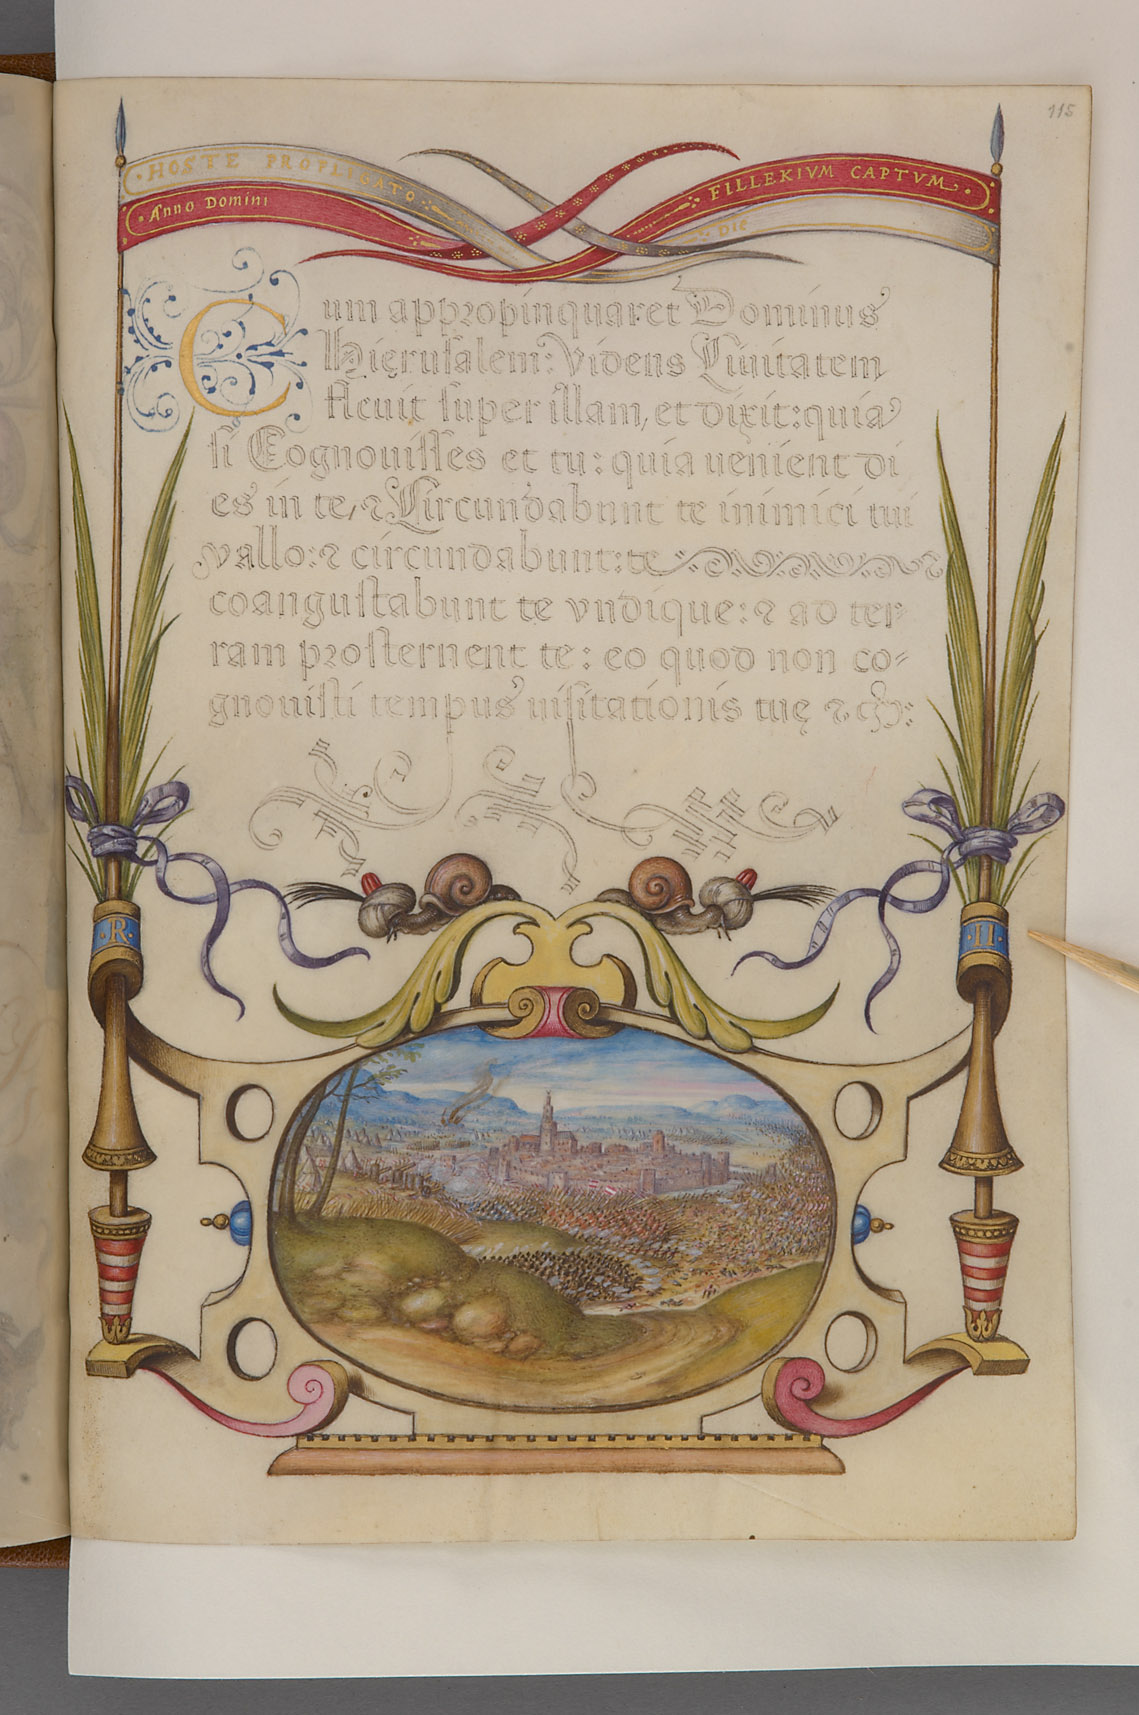 115
HOSTE PROFLIGATO
FILLEKIVM CAPTVM
Anno Domini
DIE
Cum appropinquaret Dominus
Hięrusalem: Videns Civitatem
flevit super illam, et dixit: quia
si Cognovisses et tu: quia uenient di
es in te, ⁊ Circundabunt te inimici tui
vallo: ⁊ circundabunt: te
coangustabunt te vndique: ⁊ ad ter-
ram prosternent te: eo quod non co-
gnouisti tempus uisitationis tuę ⁊
·R·
·II·